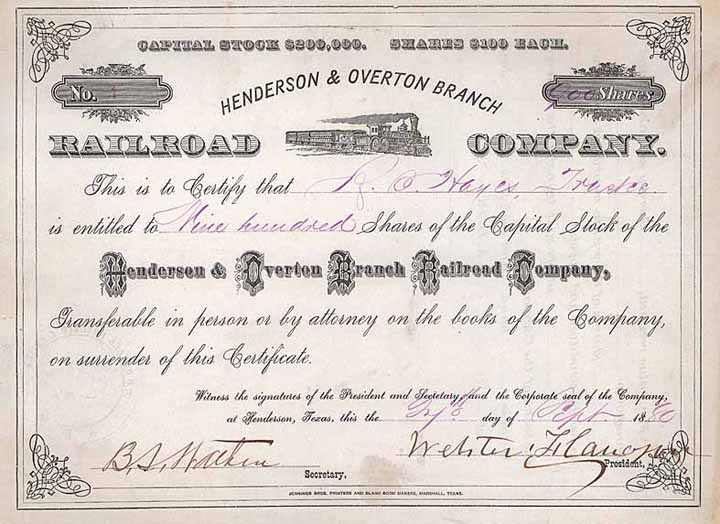 CAPITAL STOCK $200,000. SHARES $100 EACH.
No. 1
900 Shares
HENDERSON & OVERTON BRANCH
RAILROAD COMPANY.
This is to Certify that R. S. Hayes, Trustee
is entitled to Nine hundred Shares of the Capital Stock of the
Henderson & Overton Branch Railroad Company,
Transferable in person or by attorney on the books of the Company,
on surrender of this Certificate.
Witness the signatures of the President and Secretary, and the Corporate seal of the Company,
at Henderson, Texas, this the day of Sept. 1880
Webster Flanagan
Secretary. President,
JENNINGS BROS. PRINTERS AND BLANK BOOK MAKERS, MARSHALL, TEXAS.